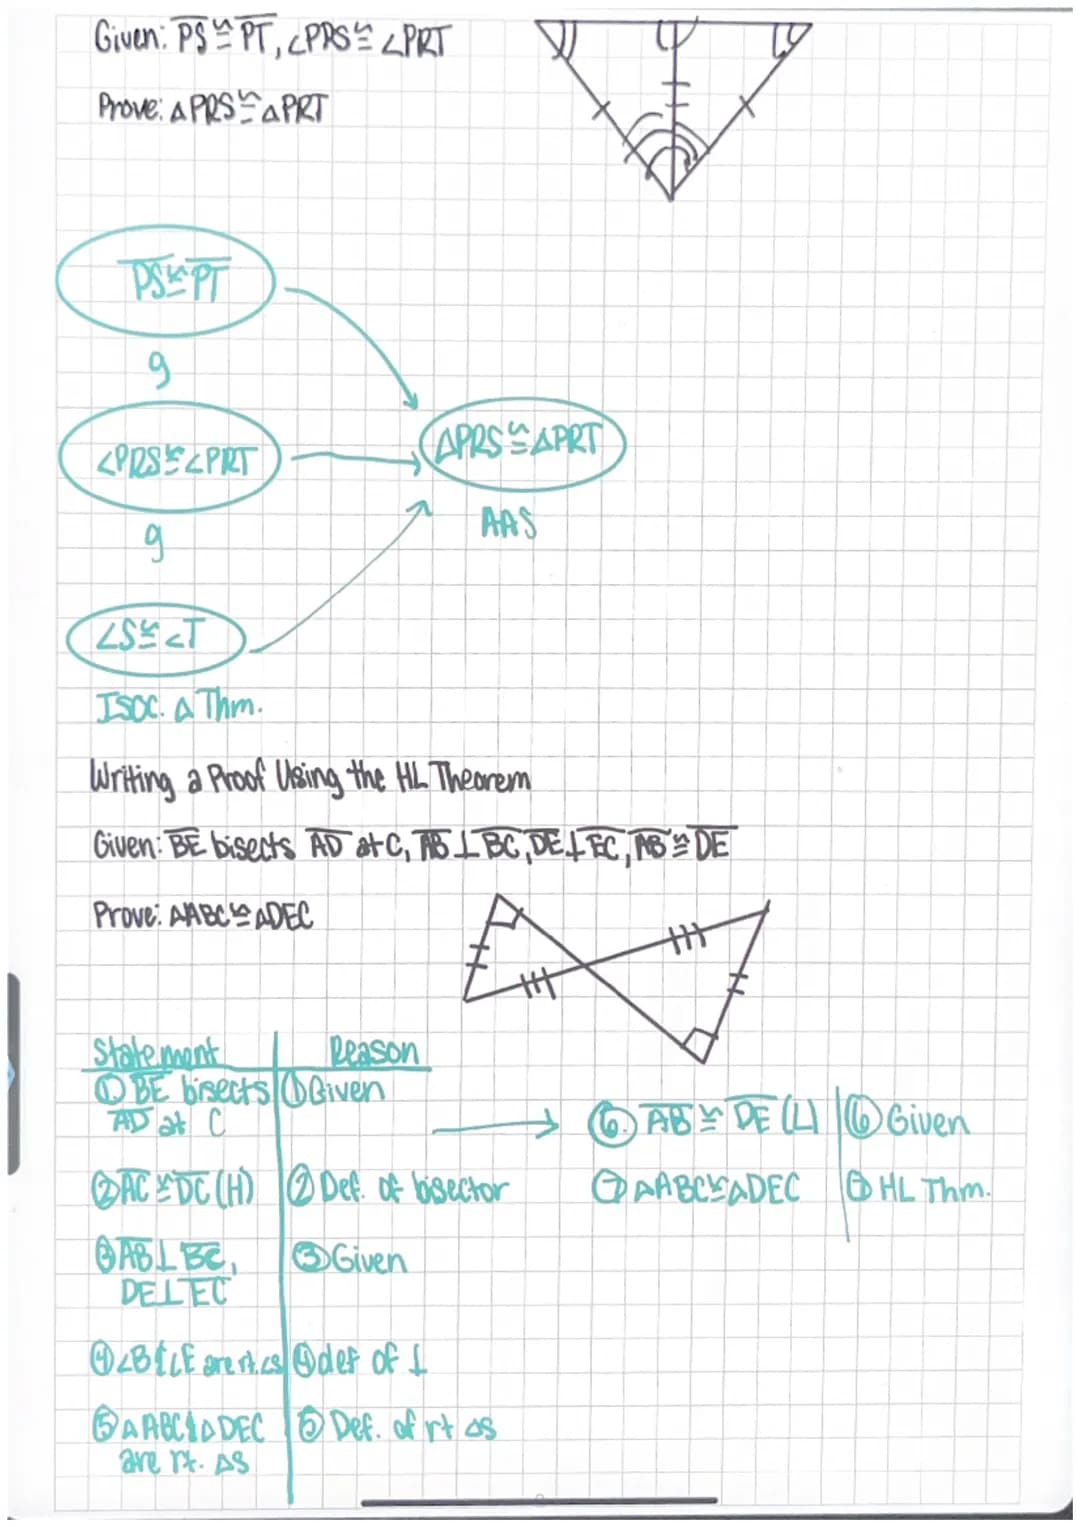 Given: PS ≅ PT, ∠PRS ≅ ∠PRT
Prove: △PRS ≅ △PRT
PS ≅ PT
g
∠PRS ≅ ∠PRT
g
△PRS ≅ △PRT
AAS
∠S ≅ ∠T
Isoc. △ Thm.
Writing a Proof Using the HL Theorem
Given: BE bisects AD at C, AB ⊥ BC, DE ⊥ EC, AB ≅ DE
Prove: △ABC ≅ △DEC
Statement Reason
① BE bisects ① Given
AD at C
② AC ≅ DC (H) ② Def. of bisector
③ AB ⊥ BC, ③ Given
DE ⊥ EC
④ ∠B & ∠E are rt. ∠s ④ def of ⊥
⑤ △ABC & △DEC ⑤ Def. of rt △s
are rt. △s
⑥ AB ≅ DE (L) ⑥ Given
⑦ △ABC ≅ △DEC ⑦ HL Thm.